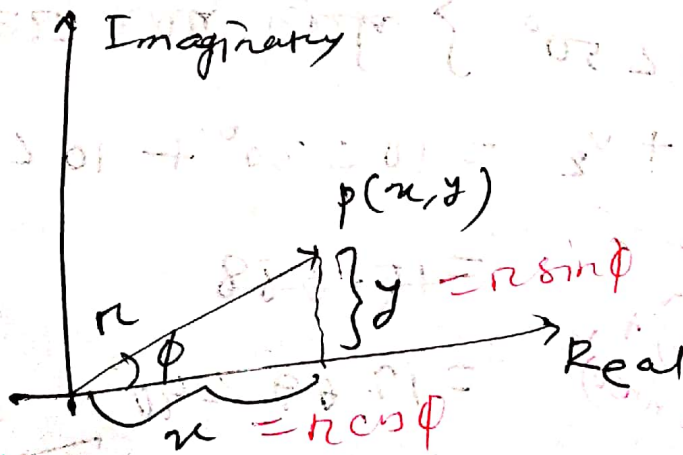 Imaginary
p(x, y)
r
ϕ
y = r sinϕ
Real
x = r cosϕ